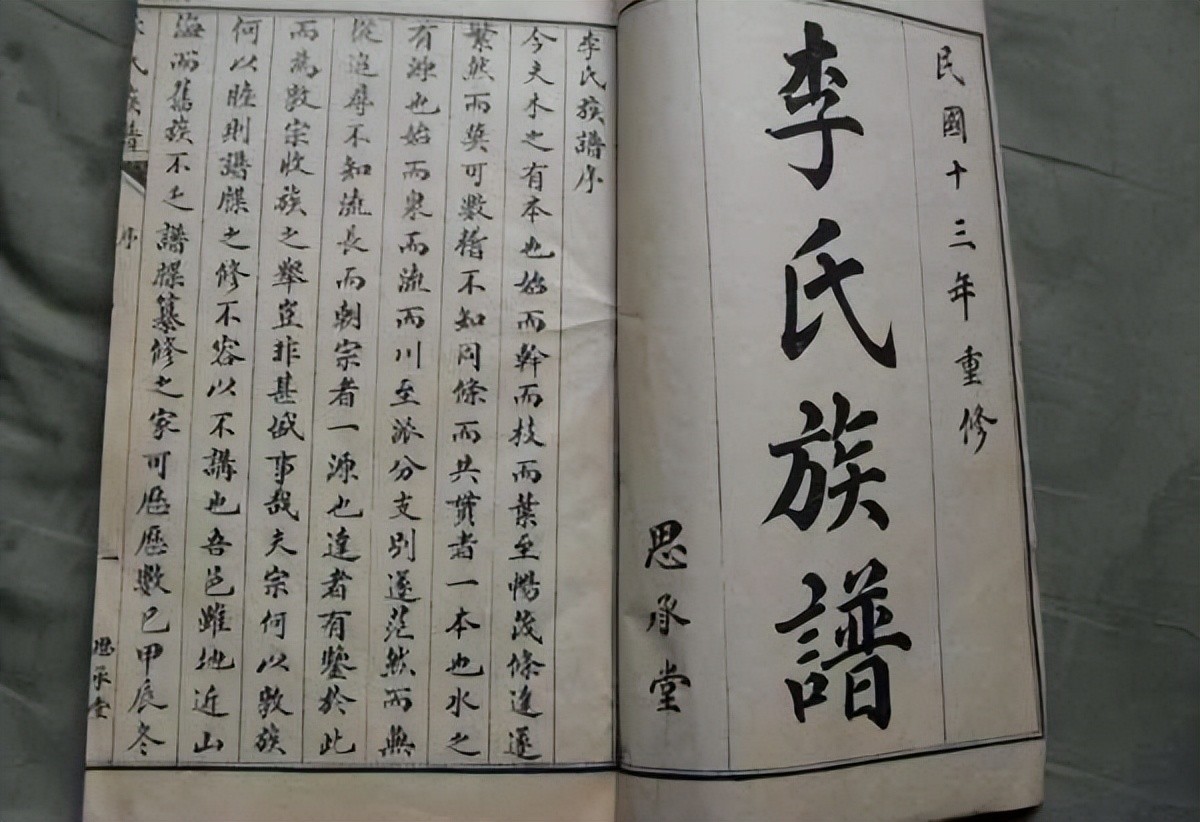 民國十三年重修
李氏族譜
思承堂
李氏族譜序
今夫木之有本也始而幹而枝而葉至暢茂條達遂
繁然而莫可數稽不知同條而共貫者一本也水之
有源也始而泉而流而川至派分支別遂茫然而無
從追尋不知流長而朝宗者一源也達者有鑒於此
而為敦宗收族之舉豈非甚盛事哉夫宗何以敦族
何以睦則譜牒之修不容以不講也吾邑雖地近山
海而舊族不乏譜牒纂修之家可歷歷數已甲辰冬
氏族譜
序
一
思承堂